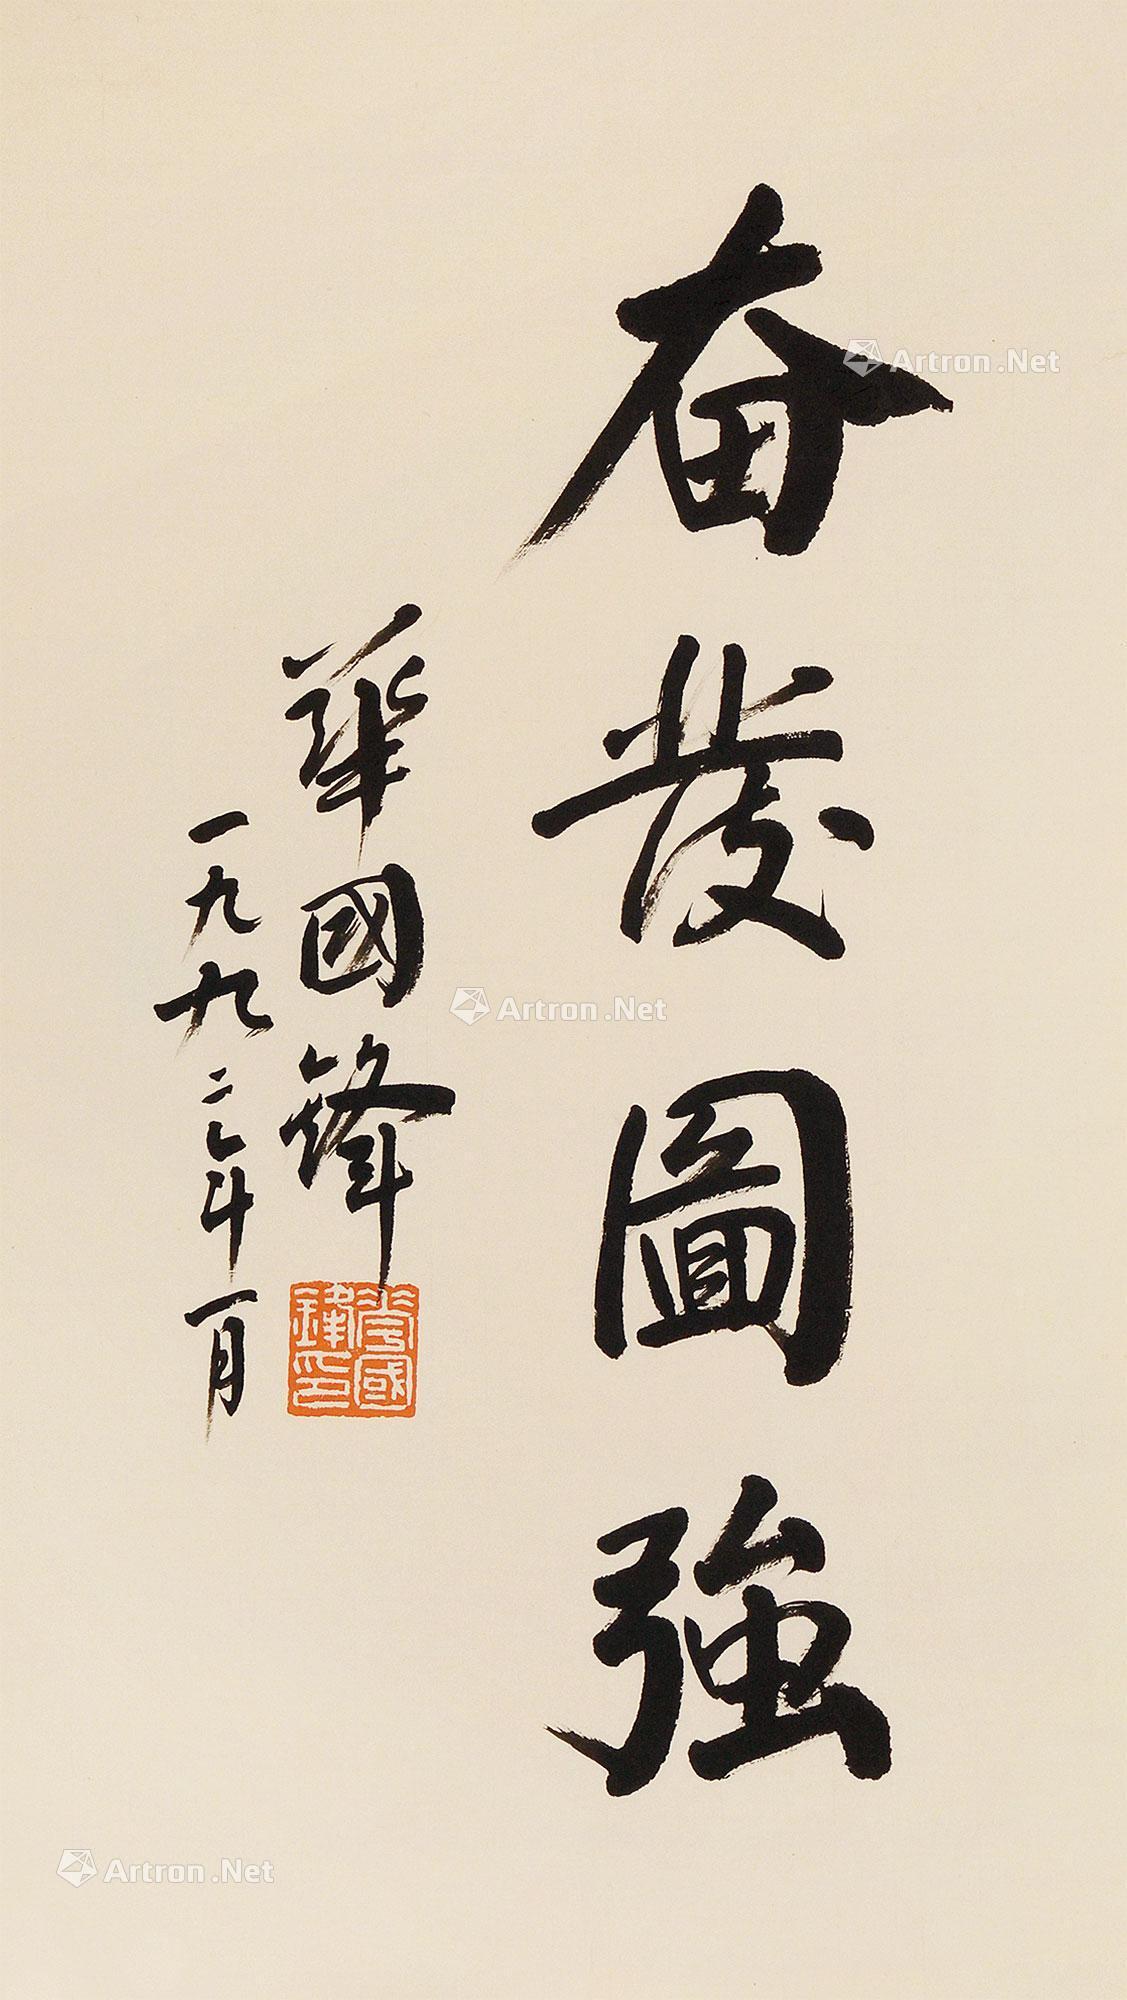 奮發圖強
華國鋒
一九九二年一月
華國鋒印
Artron.Net
Artron.Net
Artron.Net